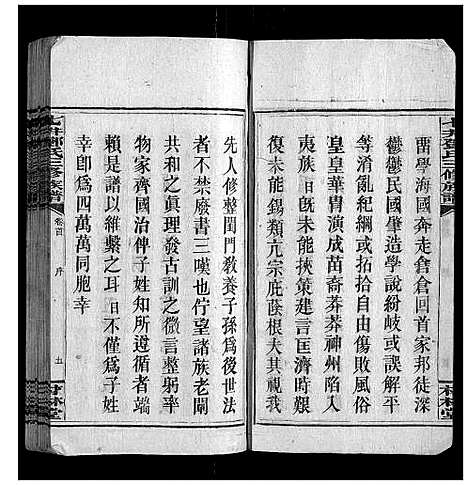 酉學海國奔走倉倉回首家邦徒深
鬱鬱民國肇造學說紛岐或誤解平
等淆亂紀綱或拓拾自由傷敗風俗
皇皇華冑演成苗裔莽莽神州陷入
夷族日未能挾策建言匡濟時艱
復未能錫類亢宗庇蔭根大其視我
先人修整閨門敎養子孫爲後世法
者不禁廢書三嘆也佇望諸族老闡
此共之眞理發古訓之微言整躬率
物家齊國治俾子姓知所遵循者端
賴是譜以維繫之耳日不僅爲子姓
幸卽爲四萬萬同胞幸
鄧氏三修族譜
卷首
序
五
林堂